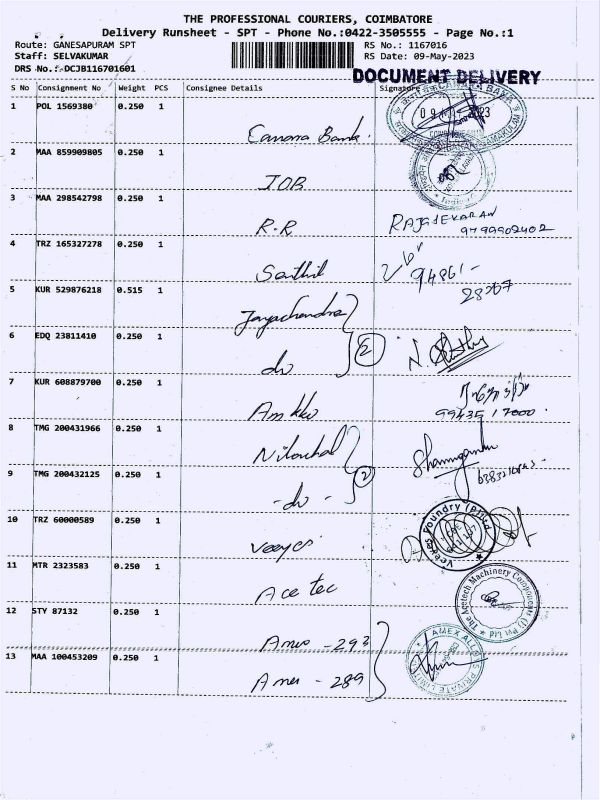 THE PROFESSIONAL COURIERS, COIMBATORE
Delivery Runsheet - SPT - Phone No.:0422-3505555 - Page No.:1
Route: GANESAPURAM SPT RS No.: 1167016
Staff: SELVAKUMAR RS Date: 09-May-2023
DRS No.: DCJB116701601
DOCUMENT DELIVERY
S No Consignment No Weight PCS Consignee Details Signature
1 POL 1569380 0.250 1
Canara Bank.
2 MAA 859909805 0.250 1
IOB
3 MAA 298542798 0.250 1
R.R RAJASEKARAN
4 TRZ 165327278 0.250 1
Senthil 94861-
5 KUR 529876218 0.515 1
Jayachandra
6 EDQ 23811410 0.250 1
do 2
7 KUR 608879700 0.250 1
8 TMG 200431966 0.250 1
9 TMG 200432125 0.250 1
- do - 2
10 TRZ 60000589 0.250 1
Veeyes Foundry (P) Ltd
Veeyes
11 MTR 2323583 0.250 1
Ace tec
The Acetech Machinery Components (I) Pvt Ltd
12 STY 87132 0.250 1
- 293
AMEX ALLOYS PRIVATE LIMITED
13 MAA 100453209 0.250 1
- 289